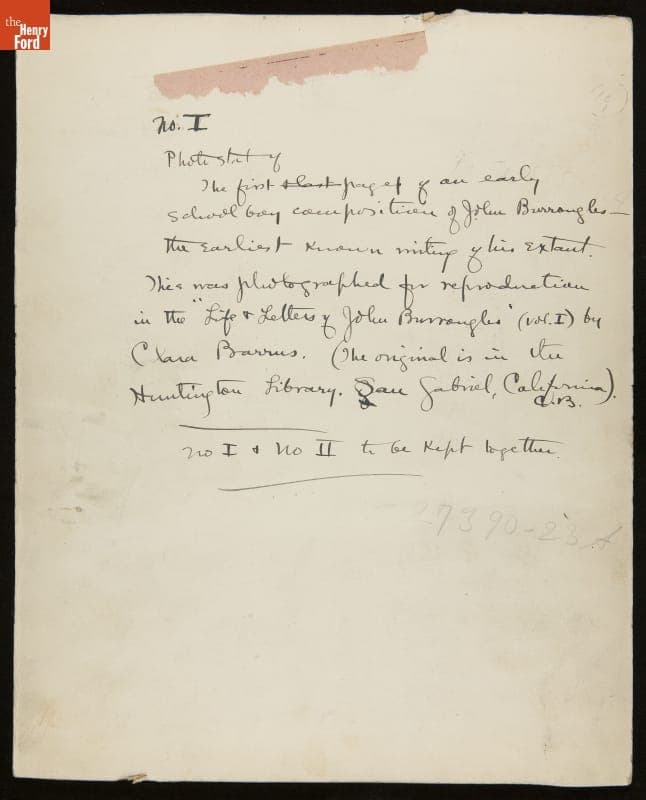 the
Henry
Ford
No. I
Photostat of
The first & last pages of an early
school boy composition of John Burroughs —
the earliest known writing of his extant.
This was photographed for reproduction
in the "Life & Letters of John Burroughs" (vol. I) by
Clara Barrus. (The original is in the
Huntington Library, San Gabriel, California).
C.B.
No I & No II to be kept together.
7390-23